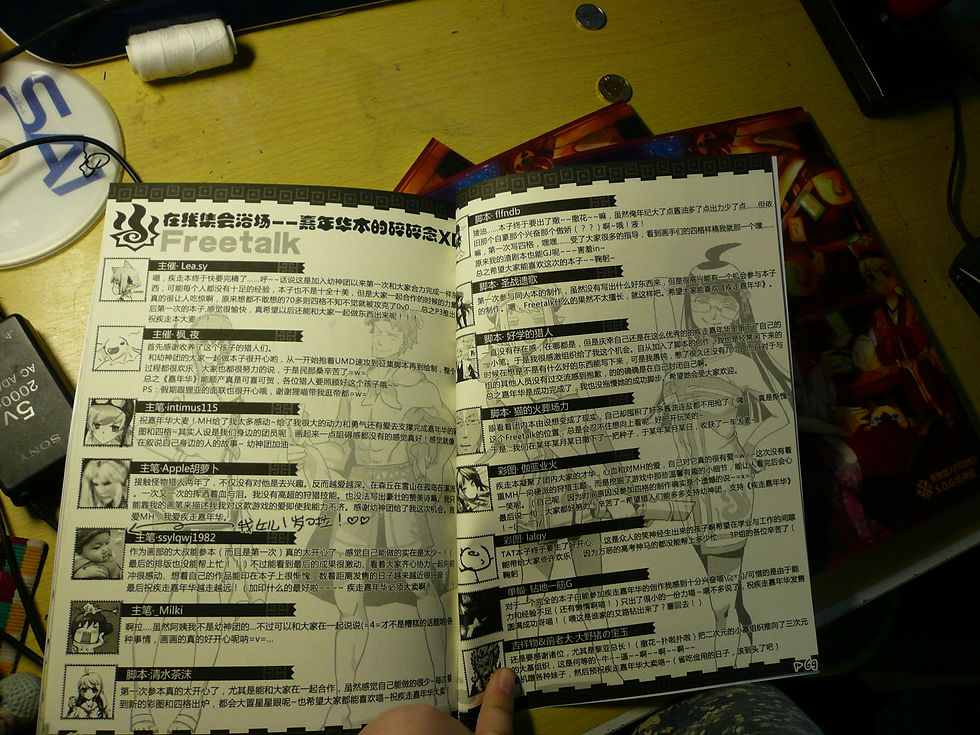 在线集会浴场--嘉年华本的碎碎念XD
Freetalk
主催·Lea.sy
嗯，疾走本终于快要完稿了……呼~一话说这是加入幼神团以来第一次和大家合力完成一样
西，可能每个人都没有十足的经验，本子也不是十全十美，但是大家一起合作的时候的力
真的很让人吃惊啊，原来想都不敢想的70多则四格不知不觉就被攻克了0v0……总之P3推出
后第一次的本子，感觉很愉快，真希望以后还能和大家一起做东西出来呢！！！
祝疾走本大麦！
主催·枫_夜
首先感谢收养了这个孩子的猎人们。
和幼神团的大家一起做本子很开心哟，从一开始抱着UMD速攻到征集脚本再到绘制，整个
过程都很欢乐！大家也都很努力的说，于是民那桑辛苦了=w=
总之《嘉年华》能顺产真是可喜可贺，各位猎人要照顾好这个孩子哦
PS：假期跟狸亚的面联也很开心哦，谢谢狸喵带我逛帝都=w=
主笔·intimus115
祝嘉年华本大麦！MH给了我太多感动~给了我很大的动力和勇气还有爱去支撑完成嘉年华的
图和四格~其实人设是我们身边的团员呢，画起来一点阻碍感都没有的感觉真好！感觉就像
在叙说自己身边的人的故事~ 幼神团加油~
主笔·Apple胡萝卜
接触怪物猎人两年了，不仅没有对他丢去兴趣，反而越爱越深。
能靠我的画笔来描述我我对这款游戏的爱即使我能力不济。感谢幼神团给了我这次机会，我
爱MH，我爱疾走嘉年华。
我女儿1岁啦！♡♡
主笔·ssylqwj1982
作为画部的大叔能参本（而且是第一次）真的太开心了，感觉自己能做的实在是太少~！（
最后的排版也没能帮上忙！！）不过能看到最后的成果很激动，看着大家齐心协力一起向前
冲很感动，想着自己的作品能印在本子上很惭愧，数着距离发售的日子越来越近很兴奋！
最后祝疾走嘉年华越走越远！（加印什么的最好啦~~~~ 疾走嘉年华必须大卖啊！
主笔·_Milki
啊拉...虽然阿姨我不是幼神团的...不过可以和大家一起说说(=4=才不是糟糕的话题呐各
种事情，画画的真的好开心呢呐=v=...
脚本·清水茶沫
第一次参本真的太开心了，尤其是能和大家在一起合作，虽然感觉自己能做的很少~每次看
到新的彩图和四格出炉，都会大冒星星眼呢~也希望大家都能喜欢喵~祝疾走嘉年华大卖！
脚本·flfndb
矮油……本子终于要出了撒~~撒花~~嘛，虽然俺年纪大了点酱油多了点出力少了点…但依
旧那个自豪那个兴奋那个傲娇（？？）啊~哦！液！
嘛，第一次写四格，嘿嘿……受了大家很多的指导，看到画手们的四格样稿我就那一个噗……
原来我的渣剧本也能GJ呢~~害羞in~
总之希望大家能喜欢这次的本子~~鞠躬~
脚本·圣战遗歌
第一次参与同人本的制作，虽然没有写出什么好东西来，但是很高兴能有一个机会参与本子
的制作。嗯，Freetalk什么的果然不太擅长，就这样吧。希望大家能喜欢《疾走嘉年华》。
脚本·好学的猎人
一直没有存在感，在哪都是，但是庆幸自己还是在这么优秀的疾走嘉年华里留下了自己的
组的其他人员没有过交流感到抱歉，的的确确是在自己封闭自己啊。
总之嘉年华是成功完成了，我也没拖慢她的成功脚步，希望她会受大家欢迎。
脚本·猫的火葬场力
眼看着团本由设想变成了现实，自己却囤积了好多酱油连盐都不用抢了（咦）……真是惭愧
这个Freetalk的位置，总是会忍不住想向上看呢，好吧开玩笑的……
于是…我们在某年某月某日撒下了一把种子，于某年某月某日，收获了一车太麦……
彩图·伽蓝业火
疾走本凝聚了团内大家的才华、心血和对MH的爱，自己对它真的很有爱=w=这次没有着
重MH一向硬派的狩猎主题，而是挖掘了游戏中那些温馨有趣的小细节，能让人看完后会心
一笑呢。（自己呢，因为时间原因没参加四格的制作确实是个遗憾的说==x=）
最后说一句，大家都好努力，辛苦了~希望猎人们能多多支持幼神团，支持《疾走嘉年华》
彩图·lalqy
TAT本子终于要生了好开心……这是众人的笑神经生出来的孩子啊希望在学业与工作的间隙
能带给大家些许欢乐……因为万恶的高考神马的都没能帮上多少忙……3P组的各位辛苦了（
鞠躬
单幅·钻地一筋G
对于一个完全的本子白能参加疾走嘉年华的创作我感到十分兴奋喵\(≥▽≤)/可惜的是由于能
力和经验不足（还有懒惰啊喵！）只出了很小的一份力喵~嘛不多说了，祝疾走嘉年华发售
圆满成功呀喵！（喂这是谁家的艾路钻出来了？塞回去！）
吉祥物&前老大·大野猪の宝玉
还是要感谢诸位，尤其是黎亚总长！（撒花~扑啪扑啪）把二次元的小基组织推向了三次元
的大基组织，这是何等的一牛一一逼~啊~~啊~啊~~
机蹭各种妹子，然后预祝疾走嘉年华大卖咯~（省吃俭用的日子，滚到头了吧）
P69
5V
2000
AC AD
SONY
S.O.G